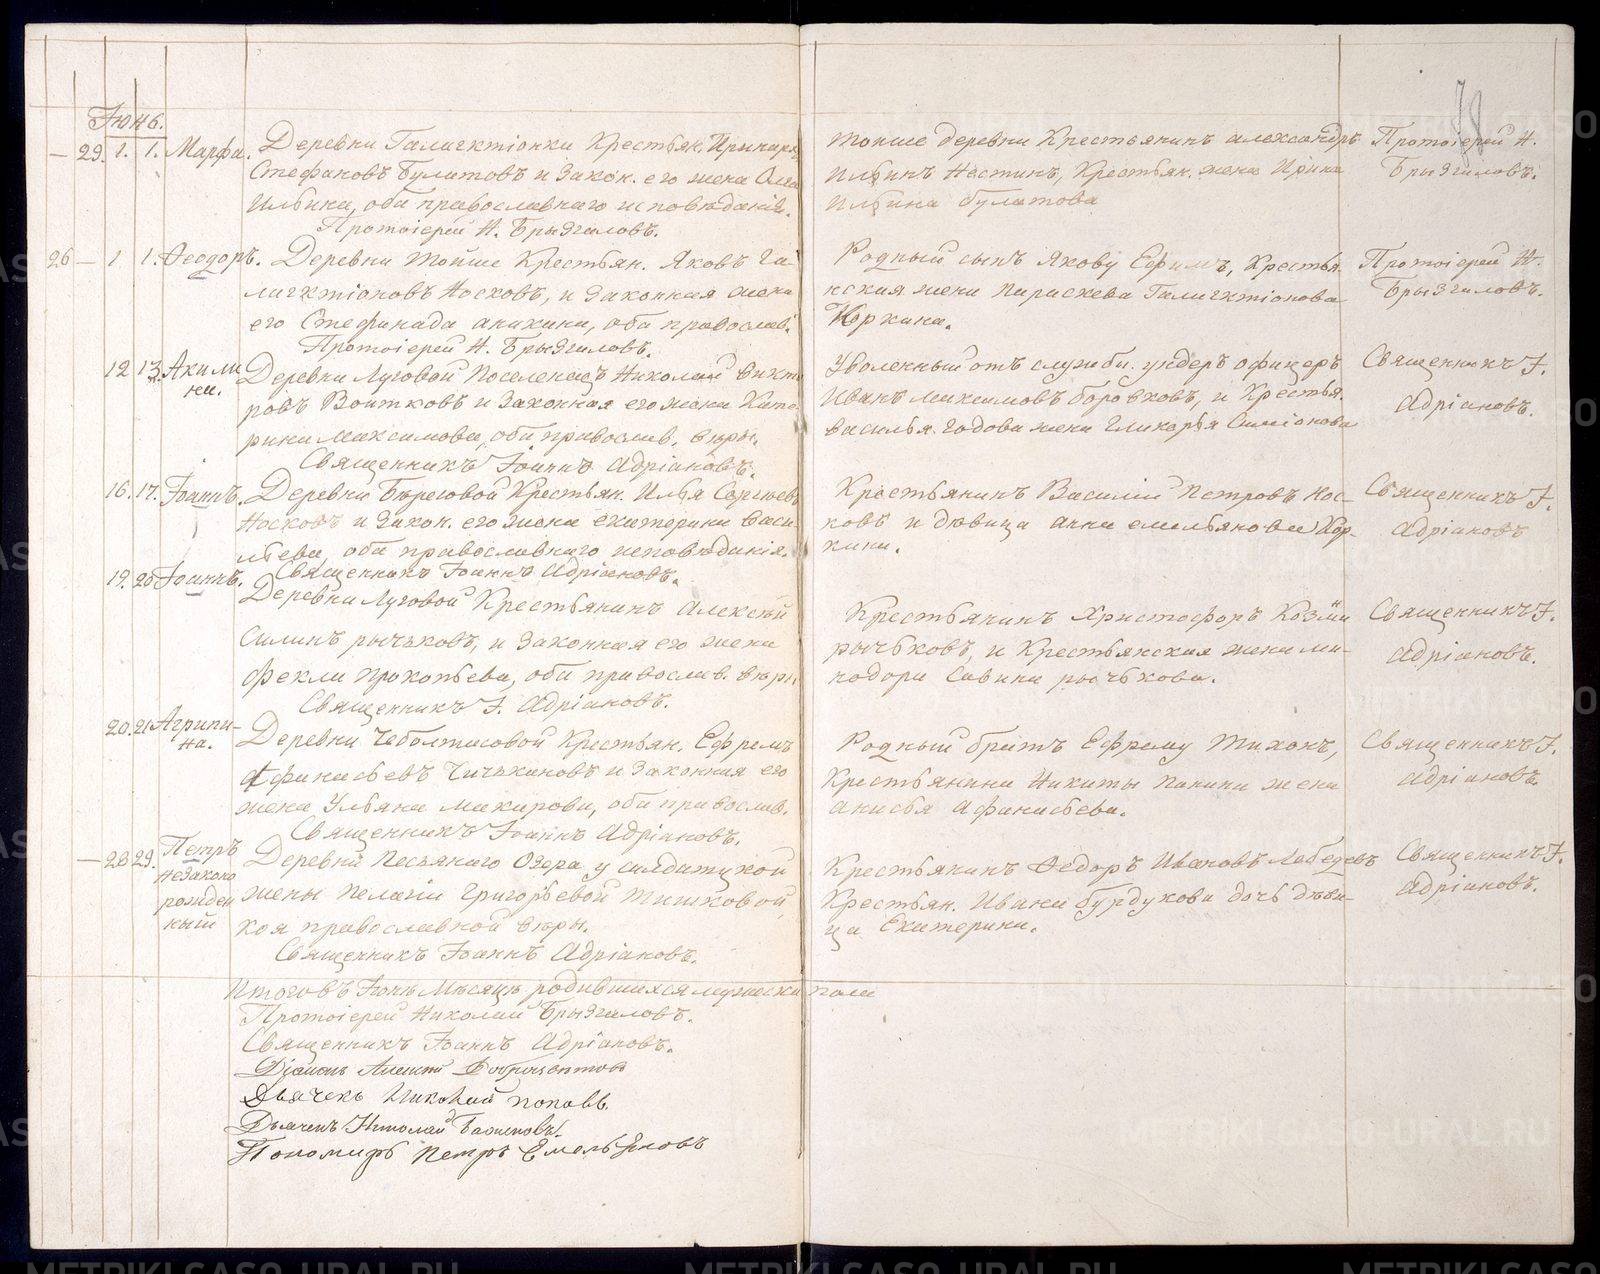 78
Июнь.
29. 1. 1. Марфа. Деревни Галактіонки Крестьян.
Стефановъ Булатовъ и Закон. его жена
Ильина, оба православнаго исповѣданія.
Протоіерей Н. Брызгаловъ.
тойже деревни Крестьянинъ александръ
Ильинъ Костинъ, Крестьян. жена Ирина
Ильина булатова
Протоіерей Н.
Брызгаловъ.
26 1 1. Феодоръ. Деревни тойже Крестьян. Яковъ Га-
лактіоновъ Носковъ, и Законная жена
его Стефанада анихина, оба православ.
Протоіерей Н. Брызгаловъ.
Родный сынъ Якову Ефимъ, Крестья-
нская жена Параскева Галактіонова
Коркина.
Протоіерей Н.
Брызгаловъ.
12 13. Акили
на. Деревни Луговой Поселенецъ Николай викто
ровъ Войтковъ и Законная его жена Кате
рина Максимова, оба православ. вѣры.
Священникъ Іоаннъ Адріановъ.
Уволенный отъ службы ундеръ офицеръ
Иванъ Максимовъ боровковъ, и Крестья.
василья Годова жена Гликерья Симіонова
Священникъ І.
Адріановъ.
16. 17. Іоаннъ. Деревни Береговой Крестьян. Илья Сергѣевъ
Носковъ и Закон. его жена екатерина васи
льева, оба православнаго исповѣданія.
Священникъ Іоаннъ Адріановъ.
Крестьянинъ Василій Петровъ Нос-
ковъ и дѣвица анна емельянова Кор-
кина.
Священникъ І.
Адріановъ
19. 20 Іоаннъ. Деревни Луговой Крестьянинъ Алексѣй
Силинъ рычьковъ, и Законная его жена
Фекла Прокопьева, оба православ. вѣры
Священникъ І. Адріановъ.
Крестьянинъ Христофоръ Козминъ
рычьковъ, и Крестьянская жена ми-
нодора Савина рычькова.
Священникъ І.
Адріановъ.
20. 21 Агрипи-
на. Деревни Чеболтасовой Крестьян. Ефремъ
Афанасьевъ Чичькановъ и Законная его
жена Ульяна макарова, оба православ.
Священникъ Іоаннъ Адріановъ.
Родный братъ Ефрему Тихонъ,
Крестьянина Никиты Панина жена
анисья Афанасьева.
Священникъ І.
Адріановъ.
28 29. Петръ
незакон
рожден
ный Деревни Песьянаго Озера у солдатцкой
жены Пелагіи Григорьевой Тишковой
коя православной вѣры.
Священникъ Іоаннъ Адріановъ.
Крестьянинъ Федоръ Ивановъ Лебедевъ
Крестьян. Ивана бурдукова дочь дѣви-
ца Екатерина.
Священникъ І.
Адріановъ.
Итого въ Іюнѣ Мѣсяцѣ родившихся мужеска пола
Протоіерей Николай Брызгаловъ.
Священникъ Іоаннъ Адріановъ.
Діаконъ Алексѣй
Дьячекъ Николай поповъ.
Дьячекъ Николай
Пономарь Петръ Емельяновъ
METRIKI.GASO-URAL.RU